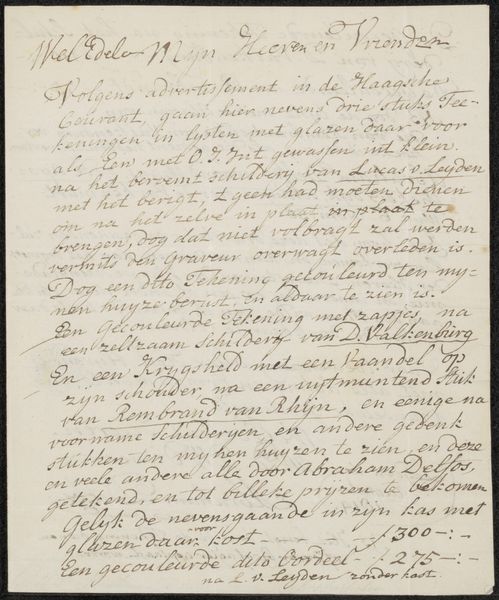 Wel Edele Mijn Heeren en Vrienden
Volgens advertissement in de Haagsche
Courant, gaan hier nevens drie stuks Tee-
keningen in lijsten met glazen daar voor
als Een met O. I. Int gewassen uit klein
na het beroemt Schilderij van Lucas v. Leyden
met het berigt, 't geen had moeten dienen
om na het zelve in plaat in plaat te
brengen, dog dat niet volbragt zal werden
vermits den Graveur overwagt overleden is.
Dog een dito Tekening gecouleurd ten mij-
nen huyze berust, en aldaar te zien is.
Een Gecouleurde Tekening met zapjes, na
een zeltzaam Schilderij van D. Valkenburg
En een Krijgsheld met een Vaandel op
zijn schouder na een uijtmuntend stuk
van Rembrand van Rhijn, en eenige na
voorname Schilderijen en andere gedenk
stukken ten mijnen huijzen te zien, en deze
en veele andere alle door Abraham Delfos
getekend, en tot billeke prijzen te bekomen
Gelijk de nevensgaande in zijn kas met
glazen daar voor kost - ƒ 300 -:-
Een gecouleurde dito Oordeel - ƒ 275 -:-
na L. v. Leyden zonder kast.